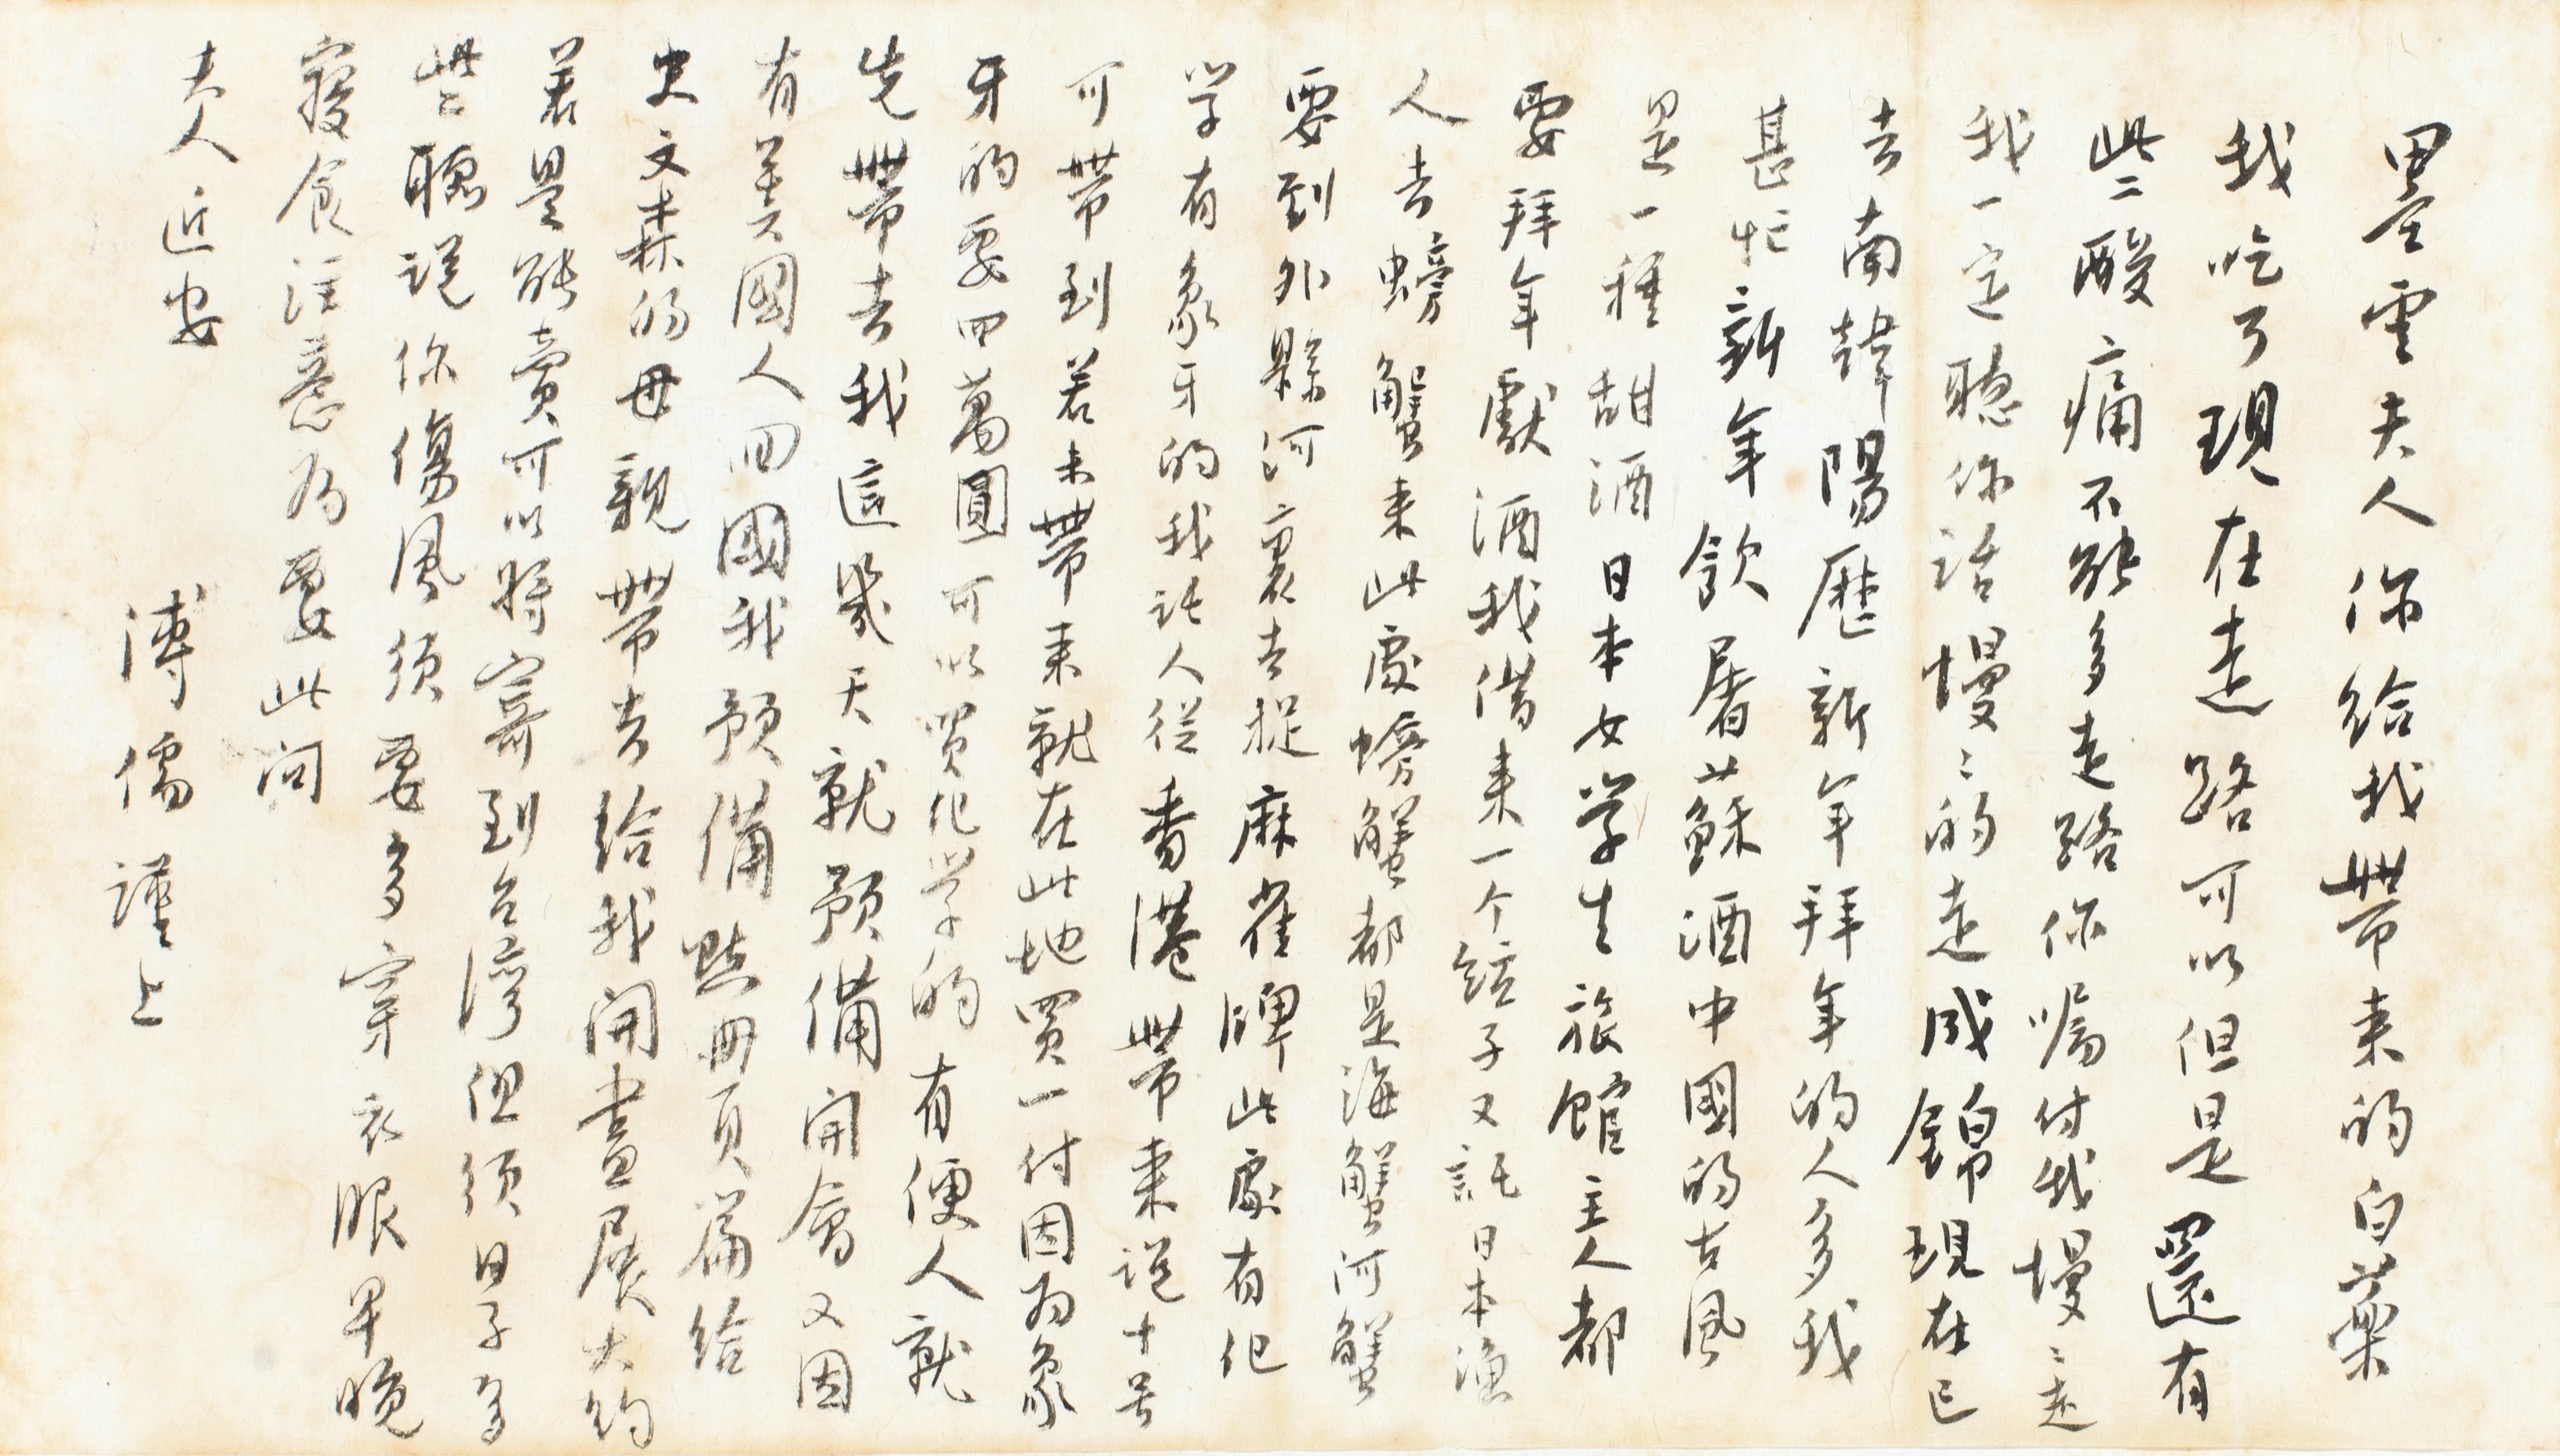 墨雲夫人你給我帶来的白藥
我吃了現在走路可以但是還有
些々酸痛不能多走路你囑付我慢々走
我一定聽你話慢々的走成錦現在已
去南韓陽歷新年拜年的人多我
甚忙新年飲屠蘇酒中國的古風
是一種甜酒日本女学生旅館主人都
要拜年獻酒我借来一个 子又託日本漁
人去螃蟹来此處螃蟹都是海蟹河蟹
要到外縣河裏去捉麻雀牌此處有化
学有象牙的我託人從香港帶来説十号
可帶到若未帶来就在此地買一付因为象
牙的要四萬圓可以買化学的有便人就
先帶去我這幾天就預備開會又因
有美國人回國我預備點册頁篇給
史文森的母親帶去給我開畫展大約
若是能賣可以將寄到台灣但須日子多
些聽說你傷風須要多穿衣服早晚
寢食注意为要此问
夫人近安
溥儒謹上